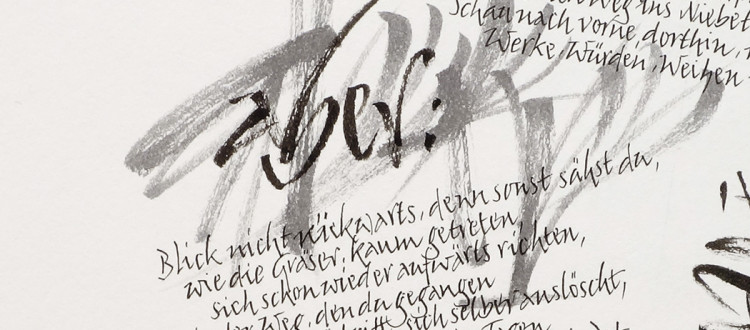 Weg ins Niebel
Schau nach vorne, dorthin,
Werke, Würden, Weihen
aber:
Blick nicht rückwarts, denn sonst sähst du,
wie die Gräser, kaum getreten,
sich schon wieder aufwärts richten,
Weg, den du gegangen
sich selber auslöscht,